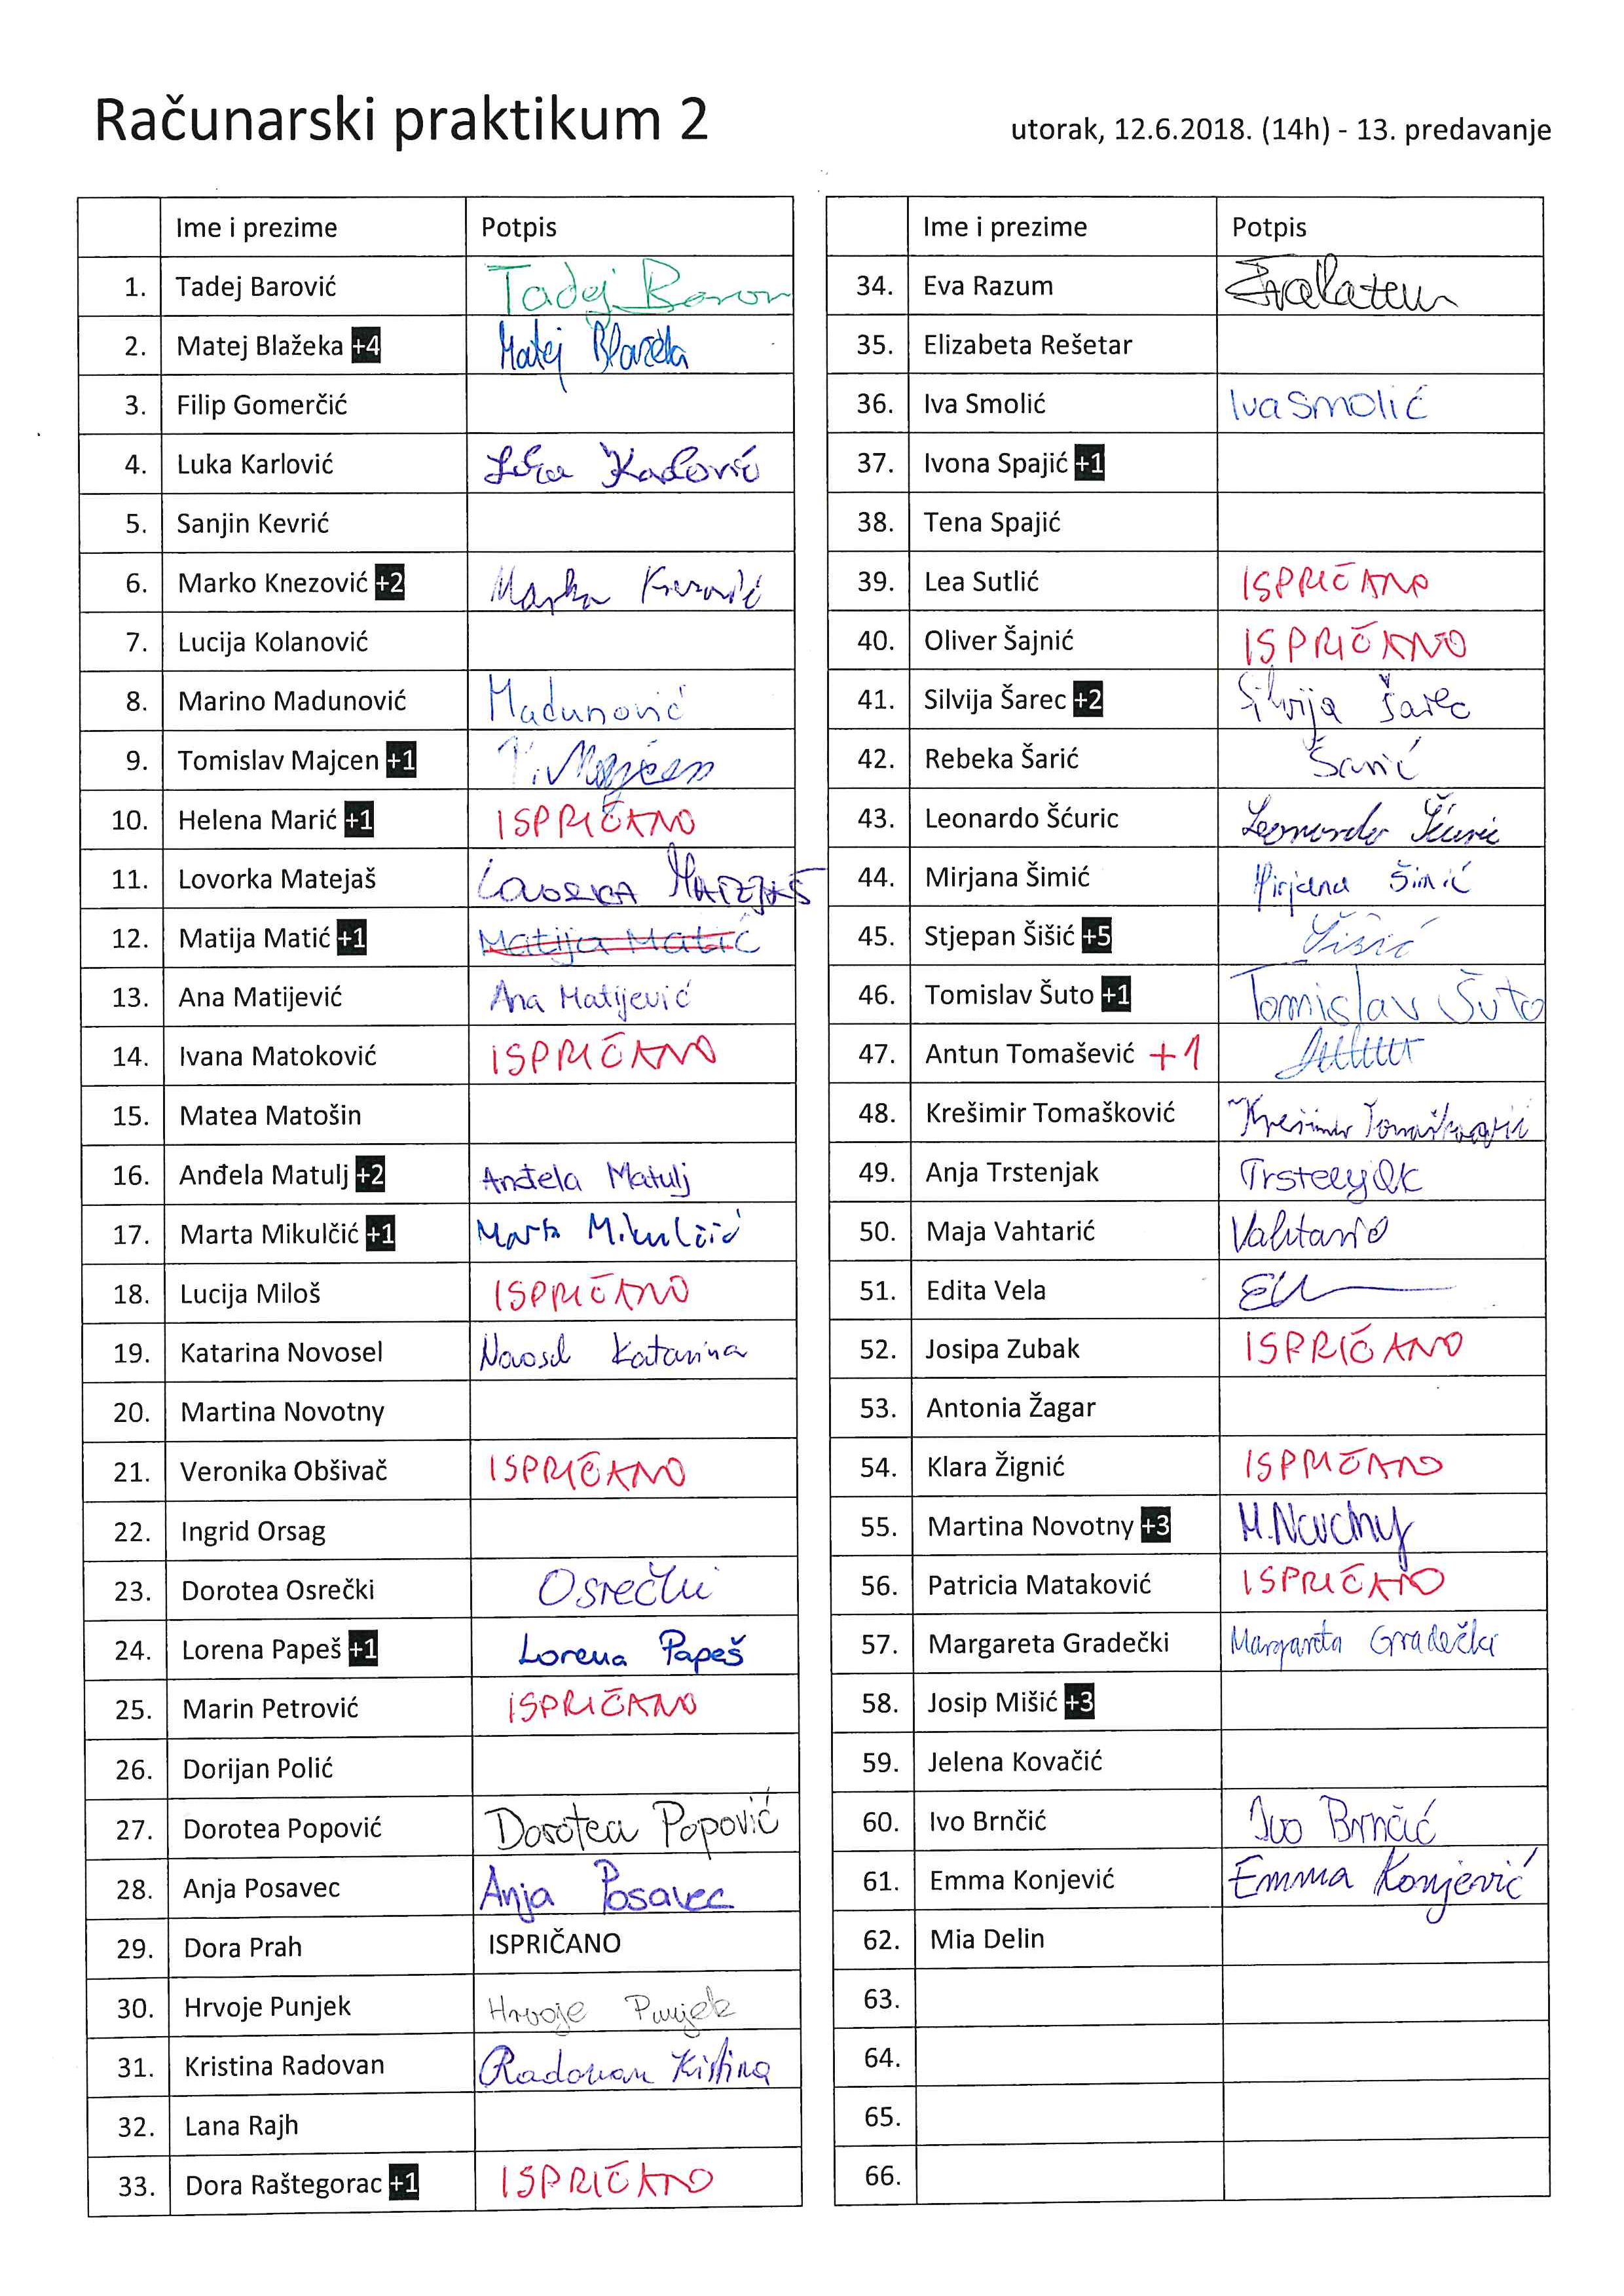 Računarski praktikum 2
utorak, 12.6.2018. (14h) - 13. predavanje
Ime i prezime Potpis
1. Tadej Barović Tadej Barov
2. Matej Blažeka +4 Matej Blažeka
3. Filip Gomerčić
4. Luka Karlović Luka Karlović
5. Sanjin Kevrić
6. Marko Knezović +2 Marko Knezović
7. Lucija Kolanović
8. Marino Madunović Madunović
9. Tomislav Majcen +1 T. Majcen
10. Helena Marić +1 ISPRIČANO
11. Lovorka Matejaš LOVORKA MATEJAŠ
12. Matija Matić +1 Matija Matić
13. Ana Matijević Ana Matijević
14. Ivana Matoković ISPRIČANO
15. Matea Matošin
16. Anđela Matulj +2 Anđela Matulj
17. Marta Mikulčić +1 Marta Mikulčić
18. Lucija Miloš ISPRIČANO
19. Katarina Novosel Novosel Katarina
20. Martina Novotny
21. Veronika Obšivač ISPRIČANO
22. Ingrid Orsag
23. Dorotea Osrečki Osrečki
24. Lorena Papeš +1 Lorena Papeš
25. Marin Petrović ISPRIČANO
26. Dorijan Polić
27. Dorotea Popović Dorotea Popović
28. Anja Posavec Anja Posavec
29. Dora Prah ISPRIČANO
30. Hrvoje Punjek Hrvoje Punjek
31. Kristina Radovan Radovan Kristina
32. Lana Rajh
33. Dora Raštegorac +1 ISPRIČANO
Ime i prezime Potpis
34. Eva Razum
35. Elizabeta Rešetar
36. Iva Smolić Iva Smolić
37. Ivona Spajić +1
38. Tena Spajić
39. Lea Sutlić ISPRIČANO
40. Oliver Šajnić ISPRIČANO
41. Silvija Šarec +2 Silvija Šarec
42. Rebeka Šarić Šarić
43. Leonardo Šćuric Leonardo Šćuric
44. Mirjana Šimić Mirjana Šimić
45. Stjepan Šišić +5 Šišić
46. Tomislav Šuto +1 Tomislav Šuto
47. Antun Tomašević +1
48. Krešimir Tomašković Krešimir Tomašković
49. Anja Trstenjak Trstenjak
50. Maja Vahtarić Vahtarić
51. Edita Vela
52. Josipa Zubak ISPRIČANO
53. Antonia Žagar
54. Klara Žignić ISPRIČANO
55. Martina Novotny +3 M.Novotny
56. Patricia Mataković ISPRIČANO
57. Margareta Gradečki Margareta Gradečki
58. Josip Mišić +3
59. Jelena Kovačić
60. Ivo Brnčić Ivo Brnčić
61. Emma Konjević Emma Konjević
62. Mia Delin
63.
64.
65.
66.